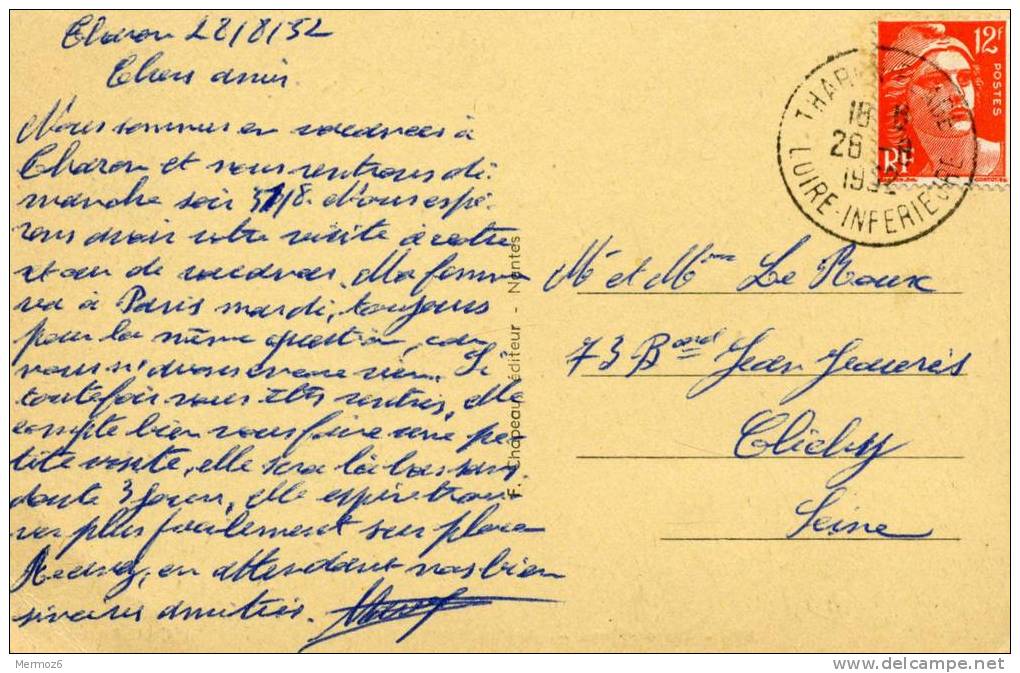 Tharon 28/8/52
Chers amis.
Nous sommes en vacances à
Tharon et nous rentrons di
manche soir 31/8. Nous espé
rons avoir votre visite à votre
retour de vacances. Ma femme
va à Paris mardi, toujours
pour la même question, car
nous n'avons encore rien. Si
toutefois vous êtes rentrés, elle
compte bien vous faire une pe
tite visite, elle sera là bas sans
doute 3 jours, elle espère trou
ver plus facilement sur place
Recevez, en attendant nos bien
sincères amitiés.
12F
POSTES
RF
THARON PLAGE
18 H
28 - 8
1952
LOIRE-INFERIEURE
Mr et Mme Le Roux
73 Bard Jean Jaurès
Clichy
Seine
F. Chapeau, éditeur - Nantes
Mermoz26
www.delcampe.net